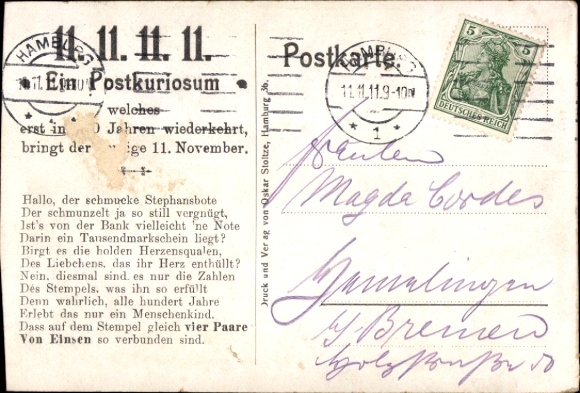 11. 11. 11. 11.
Ein Postkuriosum
welches
erst in 0 Jahren wiederkehrt,
bringt der ige 11. November.
Hallo, der schmucke Stephansbote
Der schmunzelt ja so still vergnügt,
Ist's von der Bank vielleicht 'ne Note
Darin ein Tausendmarkschein liegt?
Birgt es die holden Herzensqualen,
Des Liebchens, das ihr Herz enthüllt?
Nein, diesmal sind es nur die Zahlen
Des Stempels, was ihn so erfüllt
Denn wahrlich, alle hundert Jahre
Erlebt das nur ein Menschenkind.
Dass auf dem Stempel gleich vier Paare
Von Einsen so verbunden sind.
HAMBURG
Druck und Verlag von Oskar Stoltze, Hamburg 36.
Postkarte.
HAMBURG
11.11.11.9-10V
* 1 *
5 5
DEUTSCHES REICH
Fräulein
Magda Cordes
Hemelingen
b/ Bremen
Holzstraße